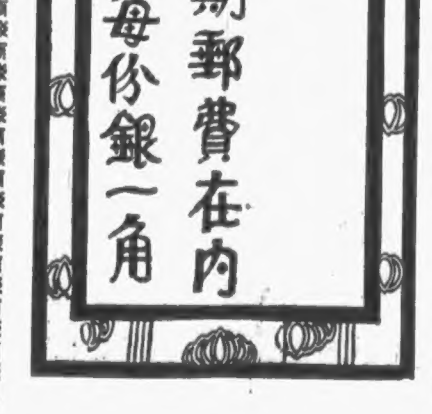 郵費在内
每份銀一角